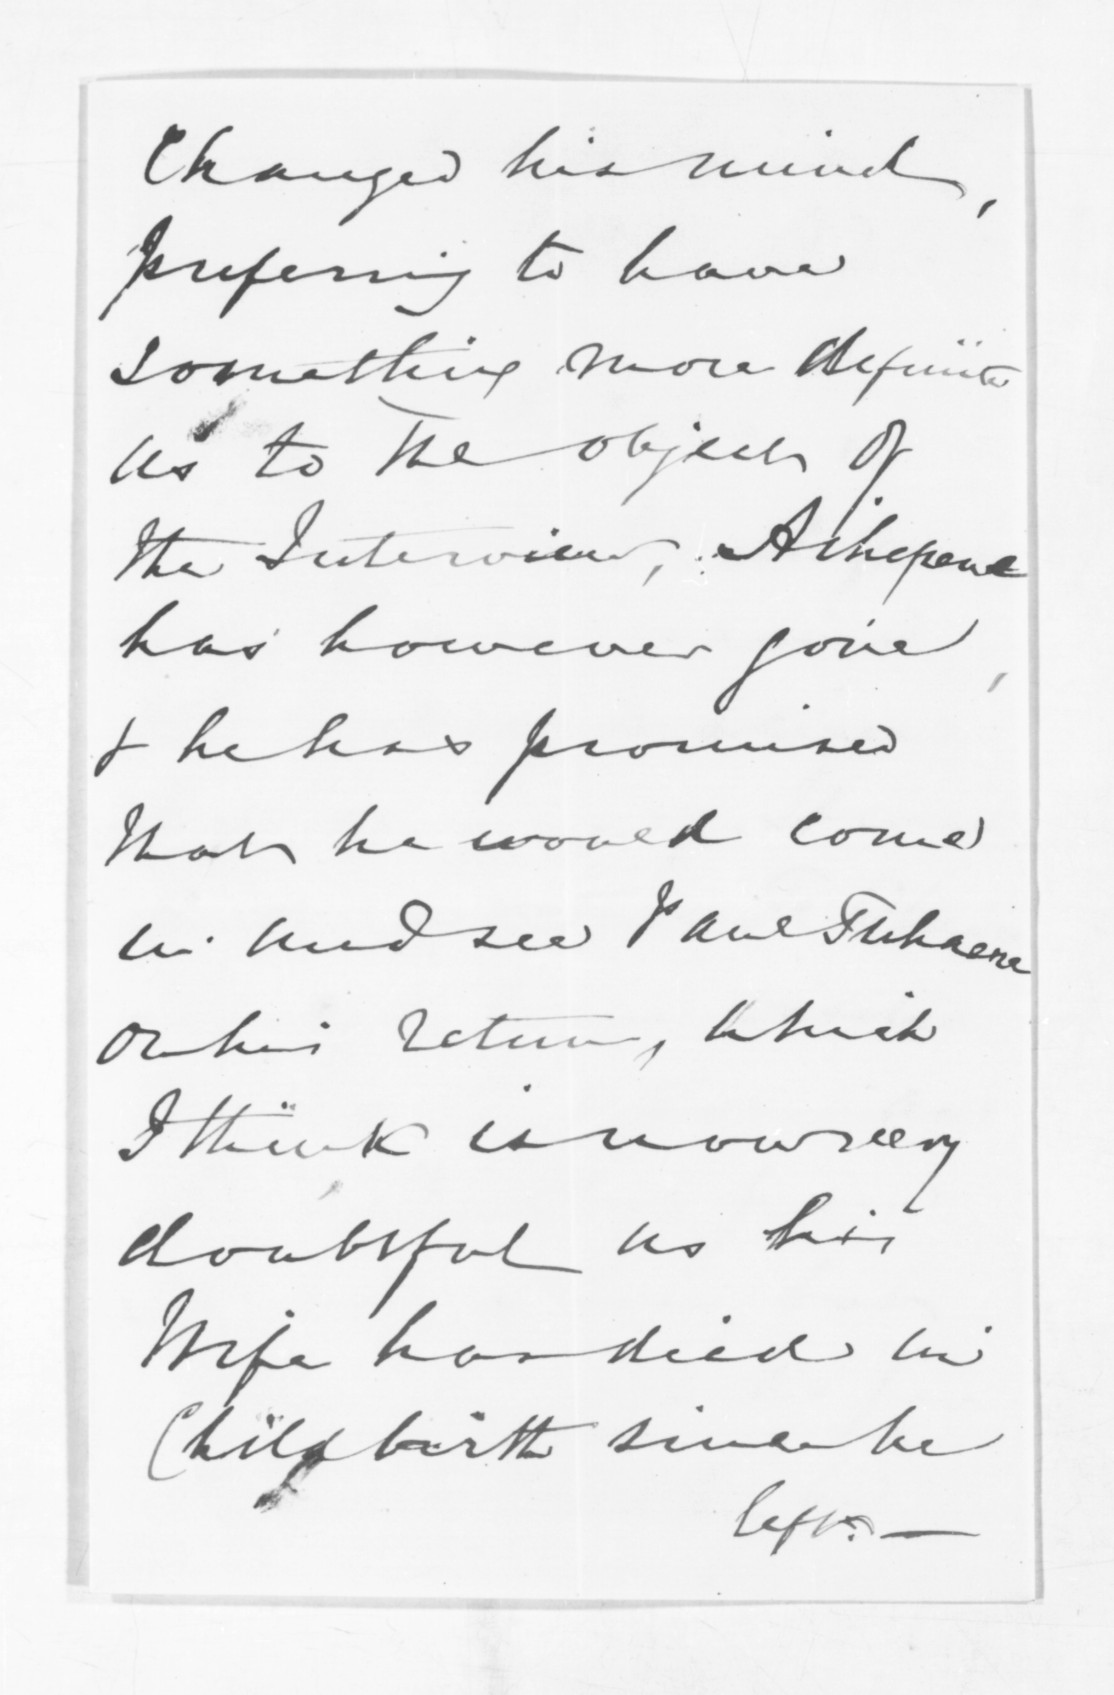 Changed his mind,
preferring to have
something more definite
as to the objects of
the Interview, Aihepene
has however gone,
& he has promised
that he would come
in and see Paul Tuhaere
on his return, which
I think is now very
doubtful as his
Wife has died in
Childbirth since he
left. —